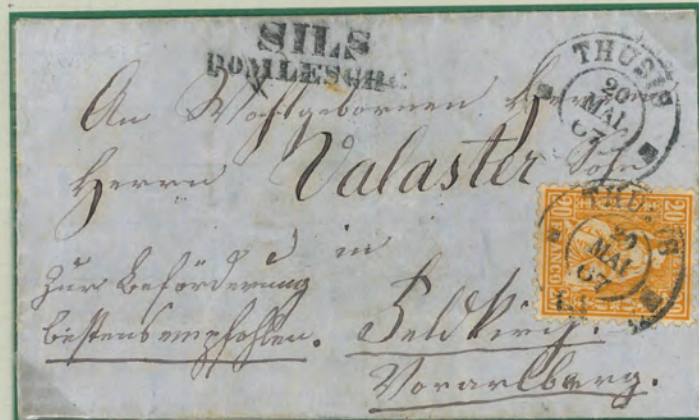 SILS
DOMLESCHG.
THUSIS
20
MAI
67
An Wohlgebornen Herrn
Herrn Valaster Sohn
THUSIS
20
MAI
67
20
FRANCO
20
in
Zur Beförderung
bestens empfohlen. Feldkirch.
Vorarlberg.